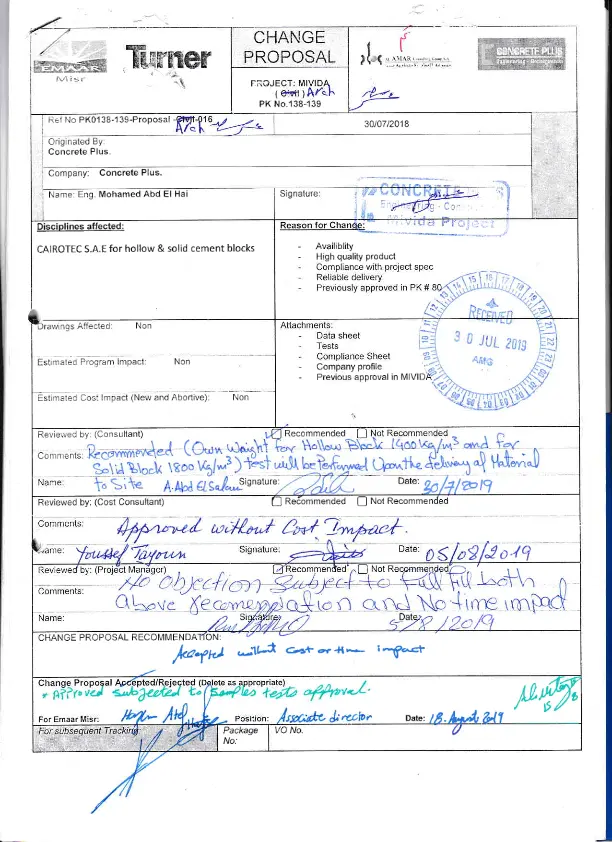 EMAAR
Misr
Turner
CHANGE
PROPOSAL
AMAR
CONCRETE PLUS
Engineering - Construction
PROJECT: MIVIDA
(Civil) Arch
PK No.138-139
Ref No PK0138-139-Proposal -Civil-016
Arch
30/07/2018
Originated By:
Concrete Plus.
Company: Concrete Plus.
Name: Eng. Mohamed Abd El Hai
Signature:
CONCRETE PLUS
Engineering - Construction
Mivida Project
Disciplines affected:
CAIROTEC S.A.E for hollow & solid cement blocks
Reason for Change:
- Availiblity
- High quality product
- Compliance with project spec
- Reliable delivery
- Previously approved in PK # 80
RECEIVED
30 JUL 2019
AMG
Drawings Affected: Non
Estimated Program Impact: Non
Estimated Cost Impact (New and Abortive): Non
Attachments:
- Data sheet
- Tests
- Compliance Sheet
- Company profile
- Previous approval in MIVIDA
Reviewed by: (Consultant)
Recommended Not Recommended
Comments: Recommended (Own Weight for Hollow Block 1400 Kg/m³ and for
Solid Block 1800 Kg/m³) test will be Performed Upon the delivery of Material
to Site
Name: A.Abd ElSalam Signature: Date: 30/7/2019
Reviewed by: (Cost Consultant)
Recommended Not Recommended
Comments: Approved without Cost Impact.
Name: Youssef Tayoun Signature: Date: 05/08/2019
Reviewed by: (Project Manager)
Recommended Not Recommended
Comments: No Objection Subject to Full Fill both
above recomendation and No time impact
Name: Signature: Date: 5/8/2019
CHANGE PROPOSAL RECOMMENDATION:
Accepted without cost or time impact
Change Proposal Accepted/Rejected (Delete as appropriate)
* Approved subjected to samples tests approval.
For Emaar Misr: Hazem Atef Position: Associate director Date: 18. August 2019
For subsequent Tracking:
Package
No:
VO No.